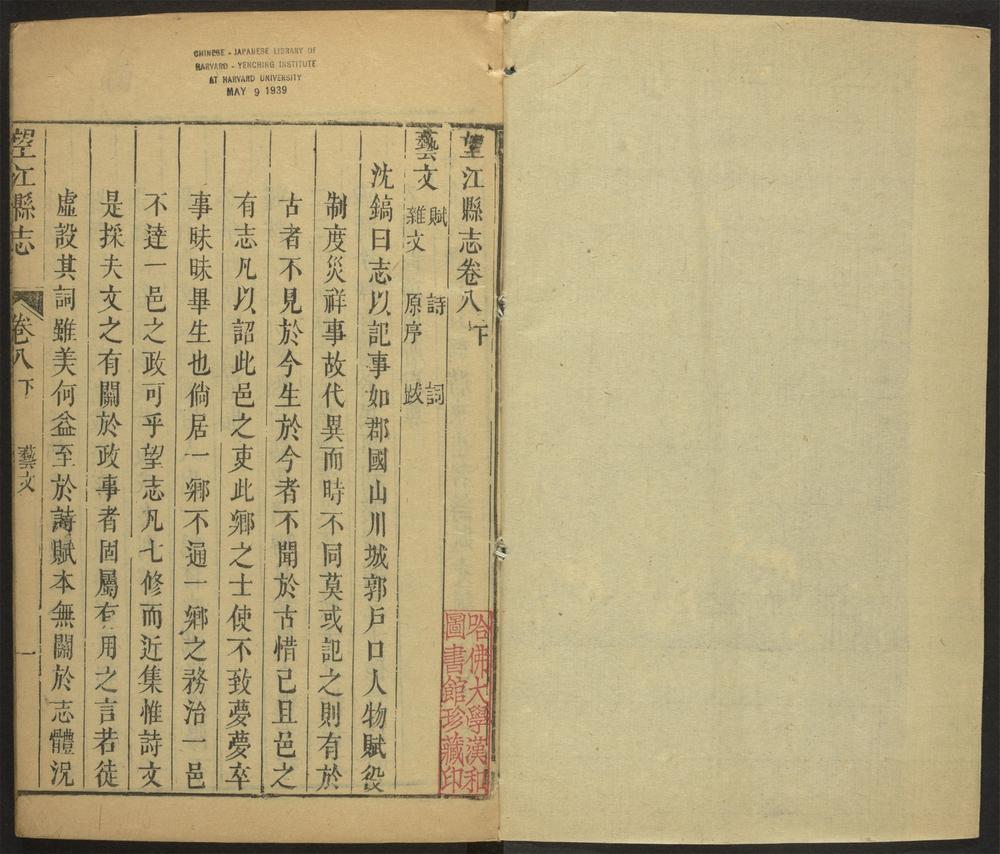 CHINESE - JAPANESE LIBRARY OF
HARVARD - YENCHING INSTITUTE
AT HARVARD UNIVERSITY
MAY 9 1939
望江縣志卷八下
藝文 賦 詩 詞
雜文 原序 跋
沈鎬曰志以記事如郡國山川城郭戶口人物賦役
制度災祥事故代異而時不同莫或記之則有於
古者不見於今生於今者不聞於古惜已且邑之
有志凡以詔此邑之吏此鄉之士使不致夢夢卒
事昧昧畢生也倘居一鄉不通一鄉之務治一邑
不達一邑之政可乎望志凡七修而近集惟詩文
是採夫文之有關於政事者固屬有用之言若徒
虛設其詞雖美何益至於詩賦本無關於志體況
望江縣志 卷八下 藝文 一
哈佛大學漢和
圖書館珍藏印